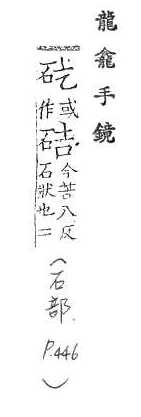 龍龕手鏡
矻或作硈今苦八反石狀也二
(石部. P.446)